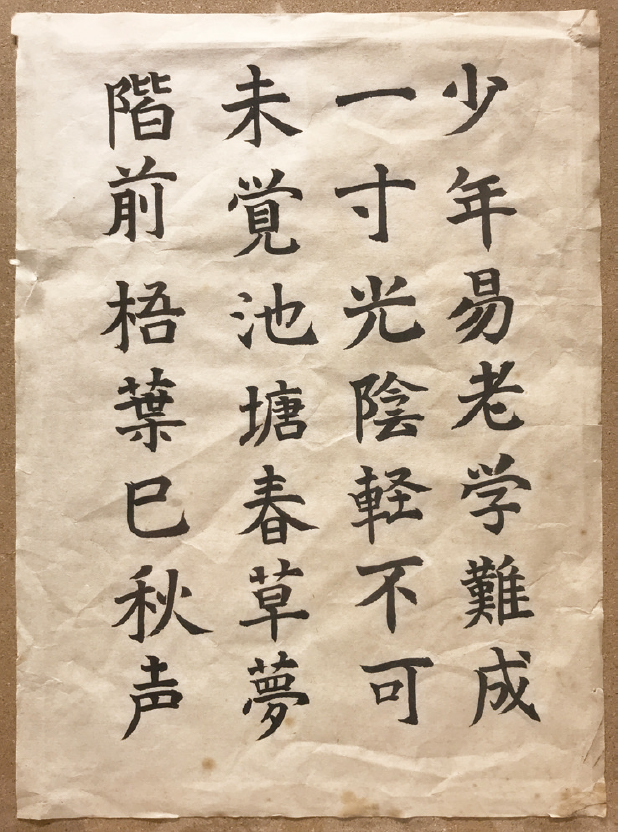 少年易老学難成
一寸光陰軽不可
未覚池塘春草夢
階前梧葉巳秋声